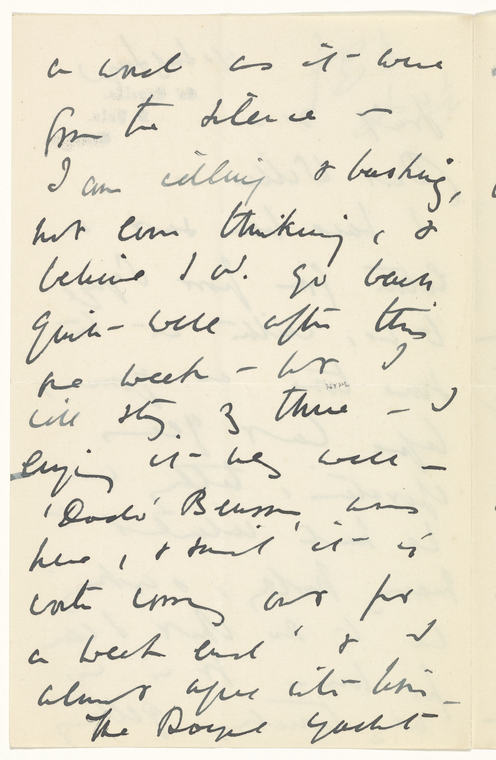 a word as it were
from the silence —
I am idling & basking,
not even thinking, &
believe I cd. go back
quite well after this
one week — but I
will stay 3 there — I
enjoy it very well —
'Dodo' Benson was
here, & said it is
worth coming out for
a week end & I
almost agree with him —
The Royal yacht